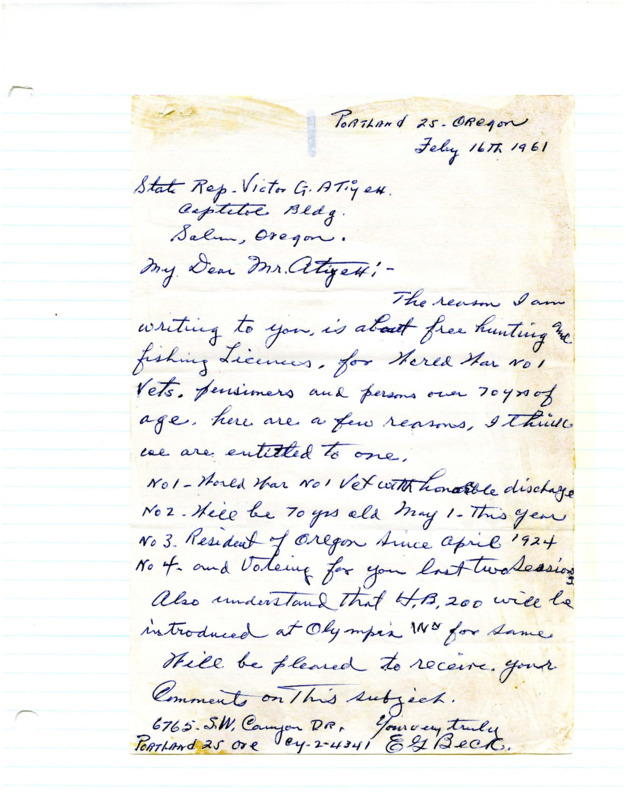 Portland 25 - Oregon
Feby 16th 1961
State Rep. Victor G. Atiyeh.
Captitol Bldg.
Salem, Oregon.
My Dear Mr. Atiyeh: -
The reason I am
writing to you, is about free hunting and
fishing Licences, for World War No 1
Vets. pensioners and persons over 70 yrs of
age. here are a few reasons, I think
we are entitled to one.
No 1 - World War No 1 Vet with honorable discharge
No 2 - Will be 70 yrs old May 1 - This year
No 3. Resident of Oregon since April 1924
No 4 - and Voteing for you last two Sessions.
Also understand that H.B. 200 will be
introduced at Olympia Wn for same
Will be pleased to receive your
Comments on This subject.
6765 - S.W. Canyon DR. Your very truly
Portland 25 Ore Cy-2-4341 E G Beck.